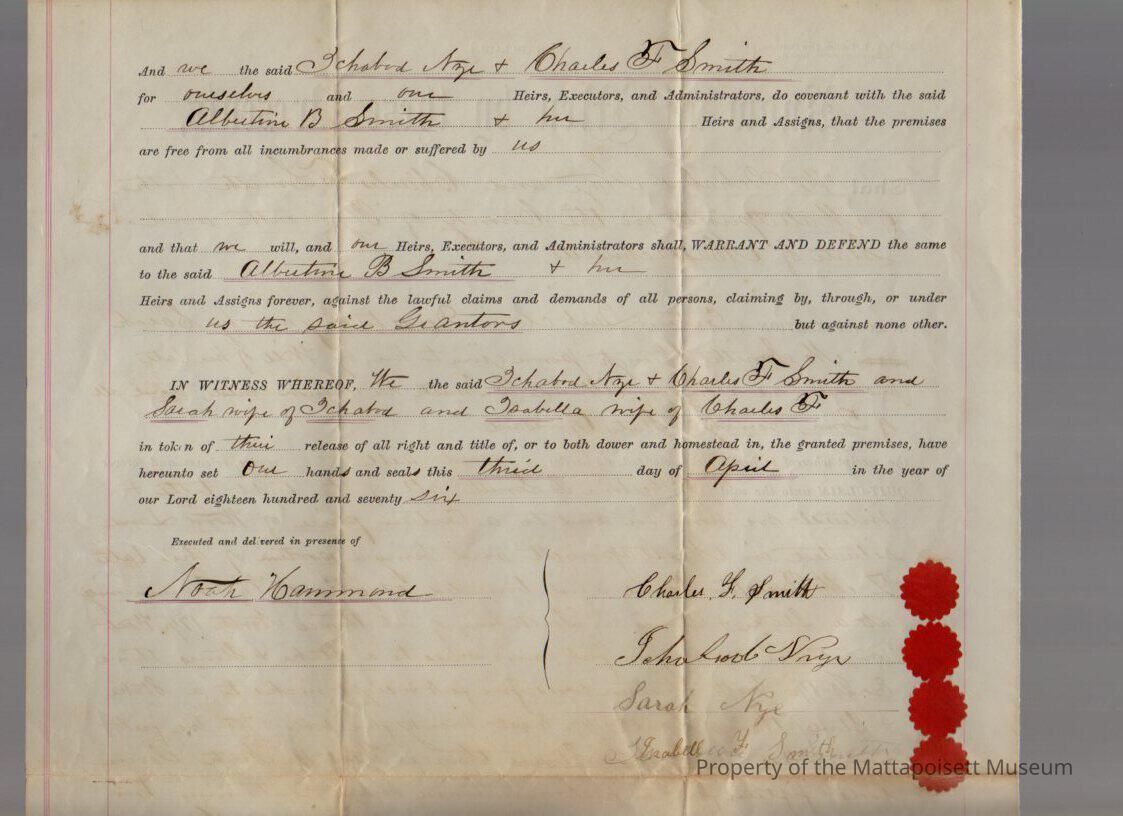 And we the said Ichabod Nye & Charles F Smith
for ourselves and our Heirs, Executors, and Administrators, do covenant with the said
Albertine B Smith & her Heirs and Assigns, that the premises
are free from all incumbrances made or suffered by us
and that we will, and our Heirs, Executors, and Administrators shall, WARRANT AND DEFEND the same
to the said Albertine B Smith & her
Heirs and Assigns forever, against the lawful claims and demands of all persons, claiming by, through, or under
us the said Grantors but against none other.
IN WITNESS WHEREOF, We the said Ichabod Nye & Charles F Smith and
Sarah wife of Ichabod and Isabella wife of Charles F
in token of their release of all right and title of, or to both dower and homestead in, the granted premises, have
hereunto set our hands and seals this third day of April in the year of
our Lord eighteen hundred and seventy six
Executed and delivered in presence of
Noah Hammond
Charles F. Smith
Ichabod Nye
Sarah Nye
Isabella F Smith
Property of the Mattapoisett Museum